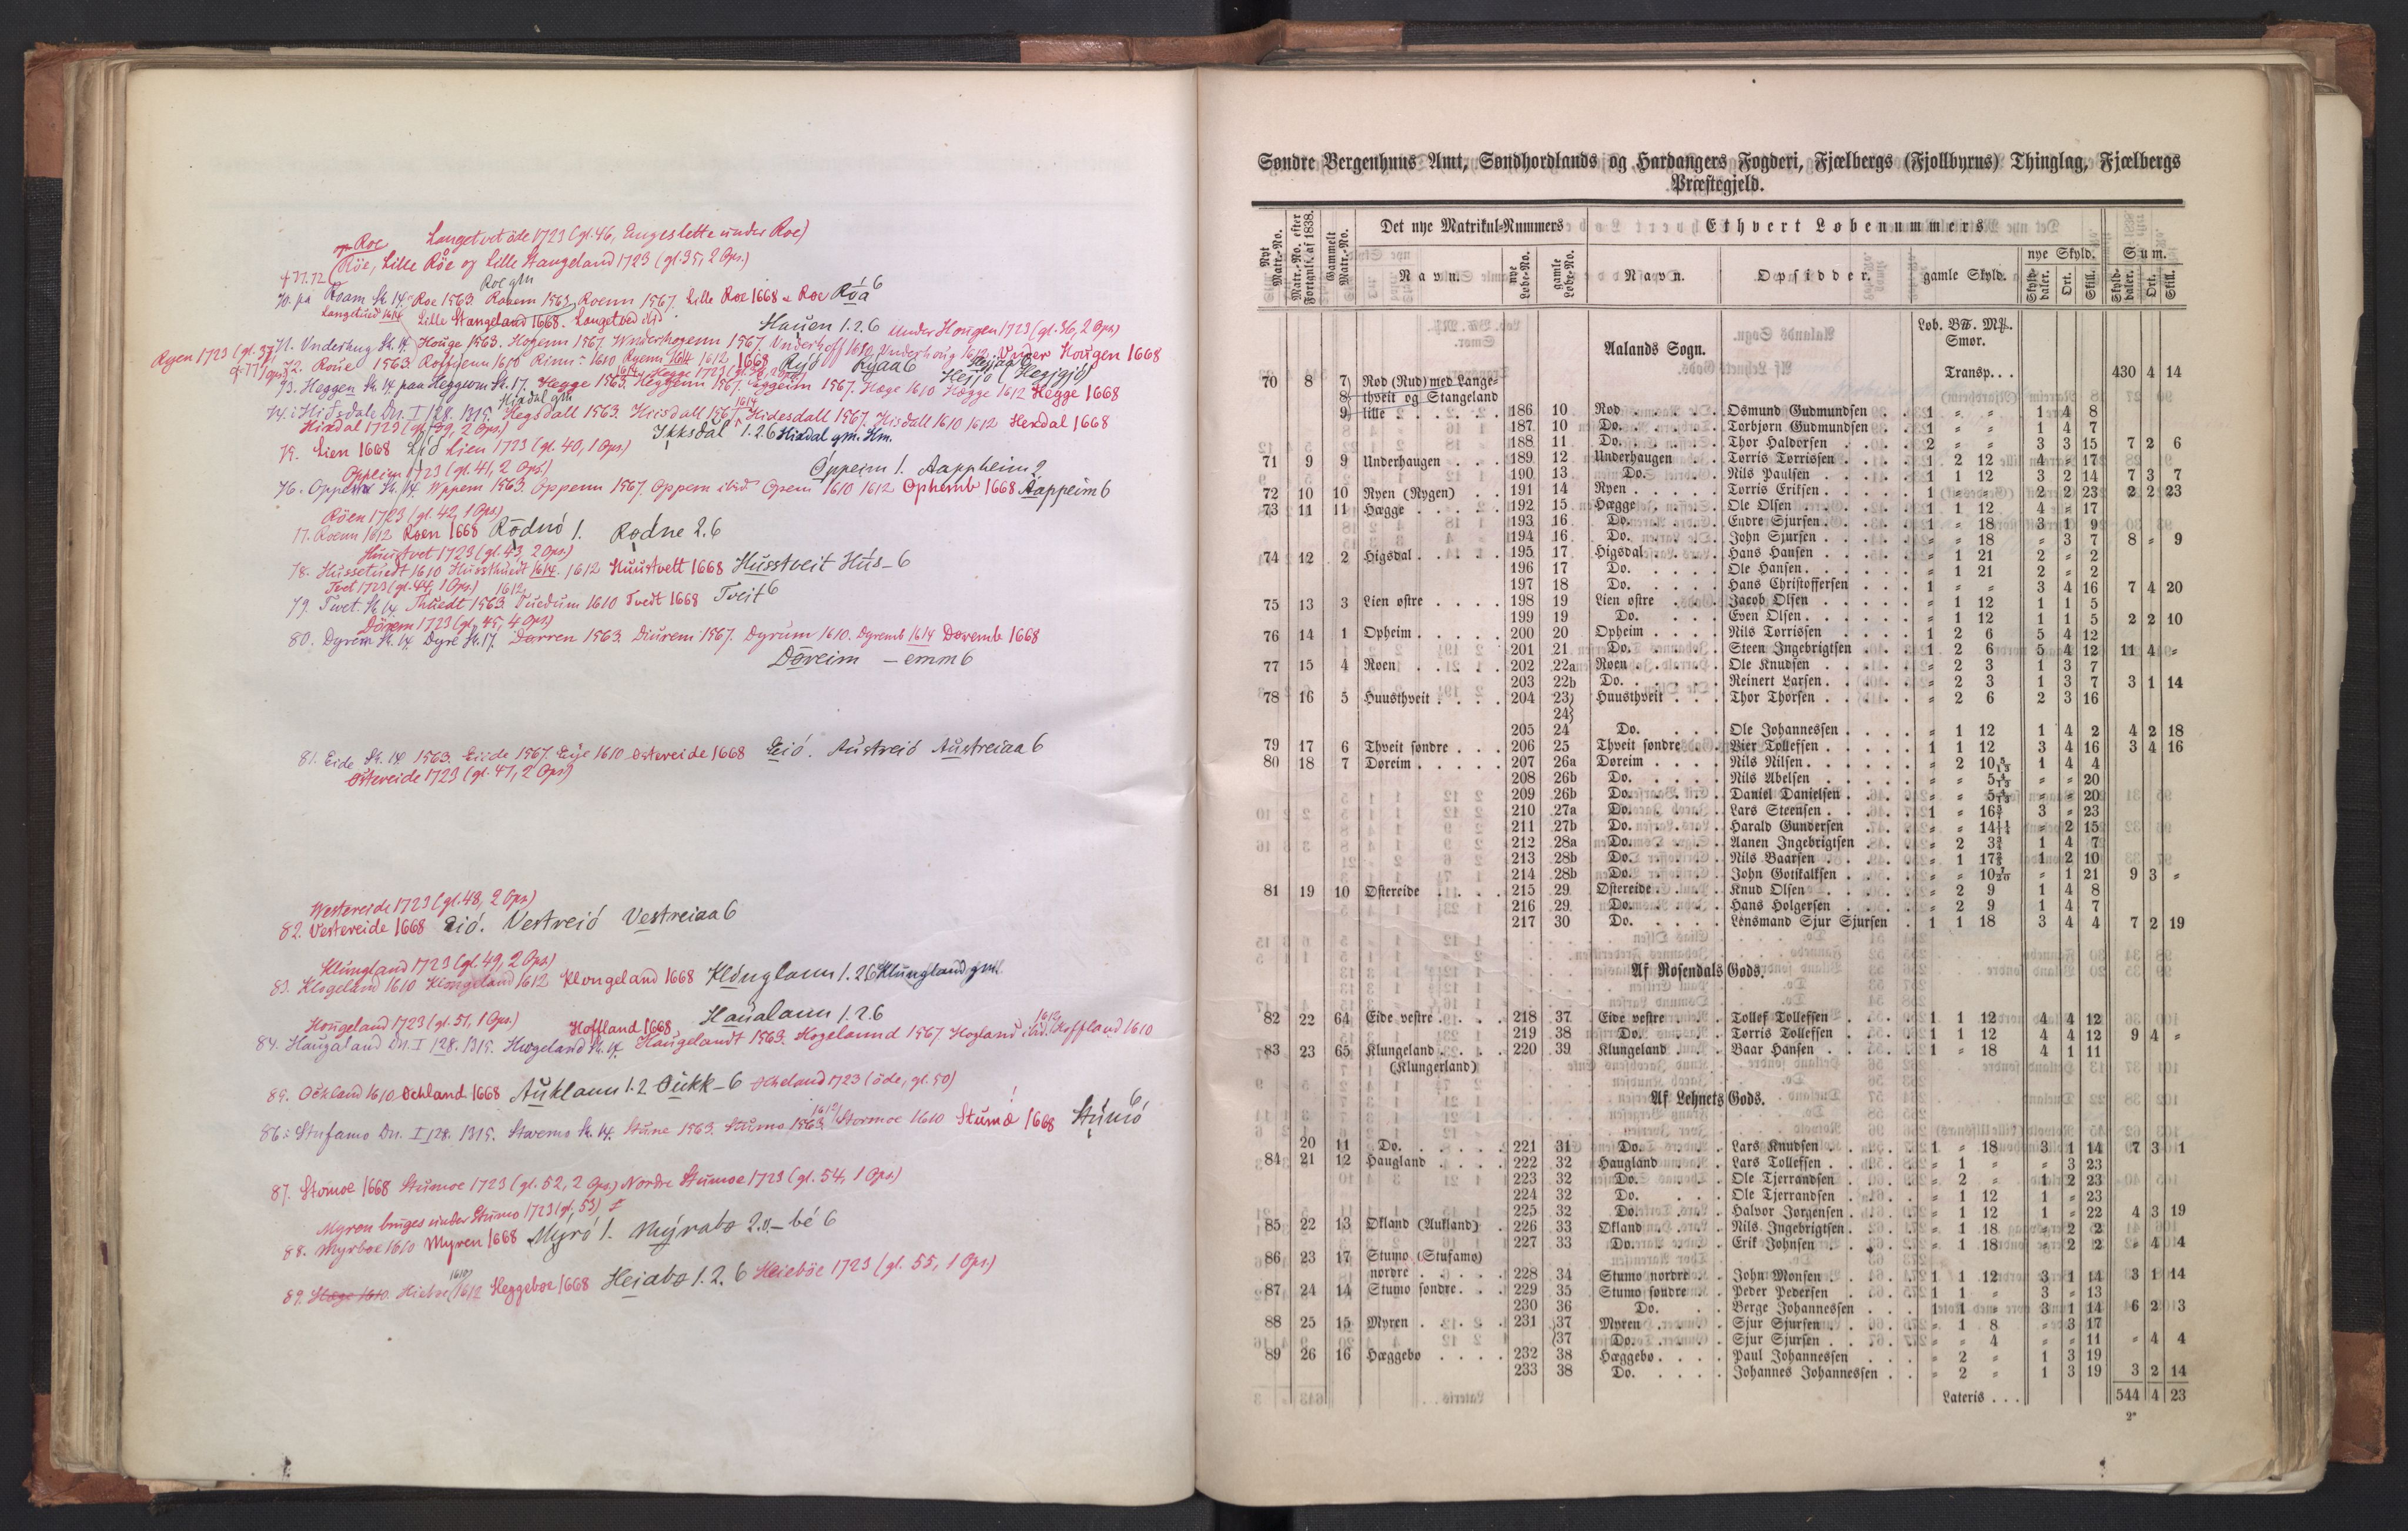 Langetvet öde 1723 (gl. 46, Engeslette under Roe)
Roe
Röe, Lille Röe og Lille Stangeland 1723 (gl. 35, 2 Ops.)
70. pa Roam St. 14. Roe 1563. Roenn 1567. Lille Roe 1668 Roe Róa 6
Langetued 1614 Lille Stangeland 1668. Langetved ibid.
Hauen 1.2.6 Under Hougen 1723 (gl. 36, 2 Ops.)
71. Vnderhug St. 14. Houge 1563. Hogenn 1567. Vnderhoff 1610. Vnderhoug 1612. Unner Hougen 1668
Ryen 1723 (gl. 37
73. Heggen St. 14. paa Heggiom St. 17. Hegge 1563. Heggenn 1567. Eggeum 1567. Hæge 1610 Hægge 1612 Hegge 1668
74. i Hixsdale Dn. I 128. 1315. Hegsdall 1563. Hiisdall 1567. Hidesdall 1567. Hisdall 1610 1612 Hexdal 1668
Hixdal 1723 (gl. 39, 2 Ops.)
75. Lien 1668 Lió Lien 1723 (gl. 40, 1 Ops.) Ikksdal 1.2.6 Hixdal gm. Hm.
Oppeim 1723 (gl. 41, 2 Ops.) Óppeim 1. Aappheim 2
76. Oppem St. 14. Wppem 1563. Oppenn 1567. Oppem ibid. Opem 1610 1612 Ophemb 1668 Aappeim 6
Röen 1723 (gl. 42, 1 Ops.)
77. Roenn 1612 Roen 1668 Ródnó 1. Rodne 2.6
Huustvet 1723 (gl. 43, 2 Ops.)
78. Hussetuedt 1610 Hussthuedt 1614. 1612 Huustvett 1668 Husstveit Hús- 6
Tvet 1723 (gl. 44, 1 Ops.) 1612
79. Twet St. 14 Thuedt 1563. Tuedum 1610 Tvedt 1668 Tveit 6
Dörem 1723 (gl. 45, 4 Ops.)
80. Dyrem St. 14. Dyre St. 17. Darren 1563. Diurem 1567. Dyrum 1610. Dyremb 1614 Doremb 1668
Dóreim - emm 6
81. Eide St. 14 1563. Eiide 1567. Eije 1610 Ostereide 1668 Eió. Austreió Austreiaa 6
Östereide 1723 (gl. 47, 2 Ops.)
Westereide 1723 (gl. 48, 2 Ops.)
82. Vestereide 1668 Eió. Vestreió Vestreiaa 6
Klungland 1723 (gl. 49, 2 Ops.)
83. Klogeland 1610 Klongeland 1612 Klongeland 1668 Klónglann 1.2.6 Klungland gm.
Haualann 1.2.6
Hougeland 1723 (gl. 51, 1 Ops.) Hoffland 1668
84. Haugaland Dn. I 128. 1315. Hwgeland St. 14. Haugelandt 1563. Hogelannd 1567. Hogland ibid. 1612 Hoffland 1610
85. Ockland 1610 Ochland 1668 Auklann 1.2 Óukk- 6 Ocheland 1723 (öde, gl. 50)
86. i Stufamo Dn. I 128. 1315. Stwemo St. 14. Stune 1563. Stumo 1563. 1612 Stormoe 1610 Stumó 1668 Stumó 6
87. Stomoe 1668 Stumoe 1723 (gl. 52, 2 Ops.) Nordre Stumoe 1723 (gl. 54, 1 Ops.)
Myren bruges under Stumo 1723 (gl. 53)
88. Myrboe 1610 Myren 1668 Mýró 1. Mýrabø 2. - bé 6
89. Hiebøe 1612 Heggeboe 1668 Heiabø 1.2.6 Heieböe 1723 (gl. 55, 1 Ops.)
Søndre Bergenhuus Amt, Søndhordlands og Hardangers Fogderi, Fjælbergs (Fjollbyrus) Thinglag, Fjælbergs
Præstegjeld.
Nyt Matr.-No. Matr.-No. efter Fortegnls. af 1838. Gammelt Matr.-No. Det nye Matrikul-Nummers Ethvert Løbenummers
Navn. nye Løbe-No. gamle Løbe-No. Navn. Opsidder. gamle Skyld. nye Skyld. Sum.
Skyld-daler. Ort. Skill. Skyld-daler. Ort. Skill.
Løb. B℔. M℔.
Smør.
Aalands Sogn.
Transp. . . 430 4 14
70 8 7) Rød (Rud) med Lange-
8) thveit og Stangeland
9) lille . . . 186 10 Rød . . . Osmund Gudmundsen . . 1 " " 1 4 8
187 10 Do. . . . Torbjørn Gudmundsen . . 1 " " 1 4 7
188 11 Do. . . . Thor Haldorsen . . 2 " " 3 3 15 7 2 6
71 9 9 Underhaugen . . . 189 12 Underhaugen . . Torris Torrissen . . 1 2 12 4 " 17
190 13 Do. . . . Nils Paulsen . . 1 1 12 3 2 14 7 3 7
72 10 10 Ryen (Rygen) . . 191 14 Ryen . . . Torris Eriksen . . 1 " " 2 2 23 2 2 23
73 11 11 Hægge . . . 192 15 Hægge . . . Ole Olsen . . 1 1 12 4 " 17
193 16 Do. . . . Endre Sjursen . . 1 " 18 3 1 9
194 16 Do. . . . John Sjursen . . " " 18 " 3 7 8 " 9
74 12 2 Higsdal . . . 195 17 Higsdal . . . Hans Hansen . . " 1 21 2 " 2
196 17 Do. . . . Ole Hansen . . " 1 21 2 " 2
197 18 Do. . . . Hans Christoffersen . . 1 " " 3 4 16 7 4 20
75 13 3 Lien østre . . . 198 19 Lien østre . . Jacob Olsen . . " 1 12 1 1 5
199 19 Do. . . . Even Olsen . . " 1 12 1 1 5 2 2 10
76 14 1 Opheim . . . 200 20 Opheim . . . Nils Torrissen . . 1 2 6 5 4 12
201 21 Do. . . . Steen Ingebrigtsen . . 1 2 6 5 4 12 11 4 "
77 15 4 Roen . . . 202 22a Roen . . . Ole Knudsen . . " 2 3 1 3 7
203 22b Do. . . . Reinert Larsen . . " 2 3 1 3 7 3 1 14
78 16 5 Huusthveit . . . 204 23) Huusthveit . . . Thor Thorsen . . " 2 6 2 3 16
24)
205 24 Do. . . . Ole Johannessen . . " 1 12 1 4 2 4 2 18
79 17 6 Thveit søndre . . . 206 25 Thveit søndre . . Vier Tollefsen . . 1 1 12 3 4 16 3 4 16
80 18 7 Døreim . . . 207 26a Døreim . . . Nils Nilsen . . " 2 10 5/13 1 4 4
208 26b Do. . . . Nils Abelsen . . " " 5 4/13 " " 20
209 26b Do. . . . Daniel Danielsen . . " " 5 4/13 " " 20
210 27a Do. . . . Lars Steensen . . 1 " 16 3 " 23
211 27b Do. . . . Harald Gundersen . . " " 14 " 2 15
212 28a Do. . . . Aanen Ingebrigtsen . . " 2 3 1 4 7
213 28b Do. . . . Nils Baarsen . . " 1 17 1 2 10
214 28b Do. . . . John Gotskalksen . . " " 10 7/20 " 1 21 9 3 "
81 19 10 Østereide . . . 215 29 Østereide . . . Knud Olsen . . " 2 9 1 4 8
216 29 Do. . . . Hans Holgersen . . " 2 9 1 4 7
217 30 Do. . . . Lensmand Sjur Sjursen . 1 1 18 3 4 4 7 2 19
Af Rosendals Gods.
82 22 64 Eide vestre . . . 218 37 Eide vestre . . . Tollef Tollefsen . . 1 1 12 4 4 12
219 38 Do. . . . Torris Tollefsen . . 1 1 12 4 4 12 9 4 "
83 23 65 Klungeland . . . 220 39 Klungeland . . . Baar Hansen . . 1 " 18 4 1 11
(Klungerland)
Af Lehnets Gods.
20 11 Do. . . . 221 31 Do. . . . Lars Knudsen . . 1 " 18 3 1 14 7 3 1
84 21 12 Haugland . . . 222 32 Haugland . . . Lars Tollefsen . . " 1 " " 3 23
223 32 Do. . . . Ole Tjerrandsen . . " 2 " 1 2 23
224 32 Do. . . . Ole Tjerrandsen . . " 1 12 1 " 23
225 32 Do. . . . Halvor Jørgensen . . " 1 12 1 " 22 4 3 19
85 22 13 Økland (Aukland) . 226 33 Økland . . . Nils Ingebrigtsen . . " 1 18 " 2 2
227 33 Do. . . . Erik Johnsen . . " 1 18 " 2 2 " 4 4
86 23 17 Stumo (Stufamo)
nordre . . . 228 34 Stumo nordre . . John Monsen . . 1 1 12 3 1 14 3 1 14
87 24 14 Stumo søndre . . . 229 35 Stumo søndre . . Peder Pedersen . . 1 1 " 3 " 13
230 36 Do. . . . Berge Johannessen . . 1 1 " 3 1 14 6 2 3
88 25 15 Myren . . . 231 (37 Myren . . . Sjur Sjursen . . " 1 8 " 3 17
(37 Do. . . . Sjur Sjursen . . " " 4 " " 11 " 4 4
89 26 16 Hæggebø . . . 232 38 Hæggebø . . . Paul Johannessen . . " 2 " 1 3 19
233 38 Do. . . . Johannes Johannessen . . " 2 " 1 3 19 3 2 14
Lateris . . . 544 4 23
2*